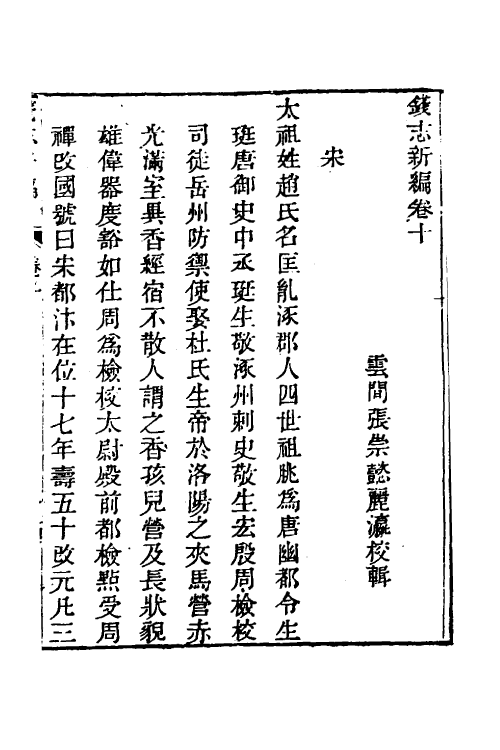 錢志新編卷十
雲間張崇懿麗瀛校輯
宋
太祖姓趙氏名匡胤涿郡人四世祖朓爲唐幽都令生
珽唐御史中丞珽生敬涿州刺史敬生宏殷周檢校
司徒岳州防禦使娶杜氏生帝於洛陽之夾馬營赤
光滿室異香經宿不散人謂之香孩兒營及長狀貌
雄偉器度豁如仕周爲檢校太尉殿前都檢㸃受周
禪改國號曰宋都汴在位十七年壽五十改元凡三